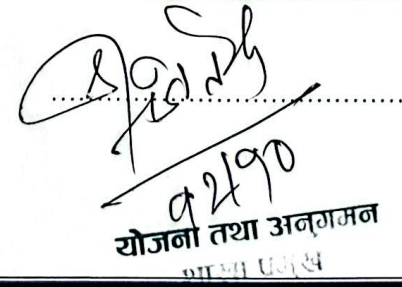 १२।१०
योजना तथा अनुगमन
शाखा प्रमुख